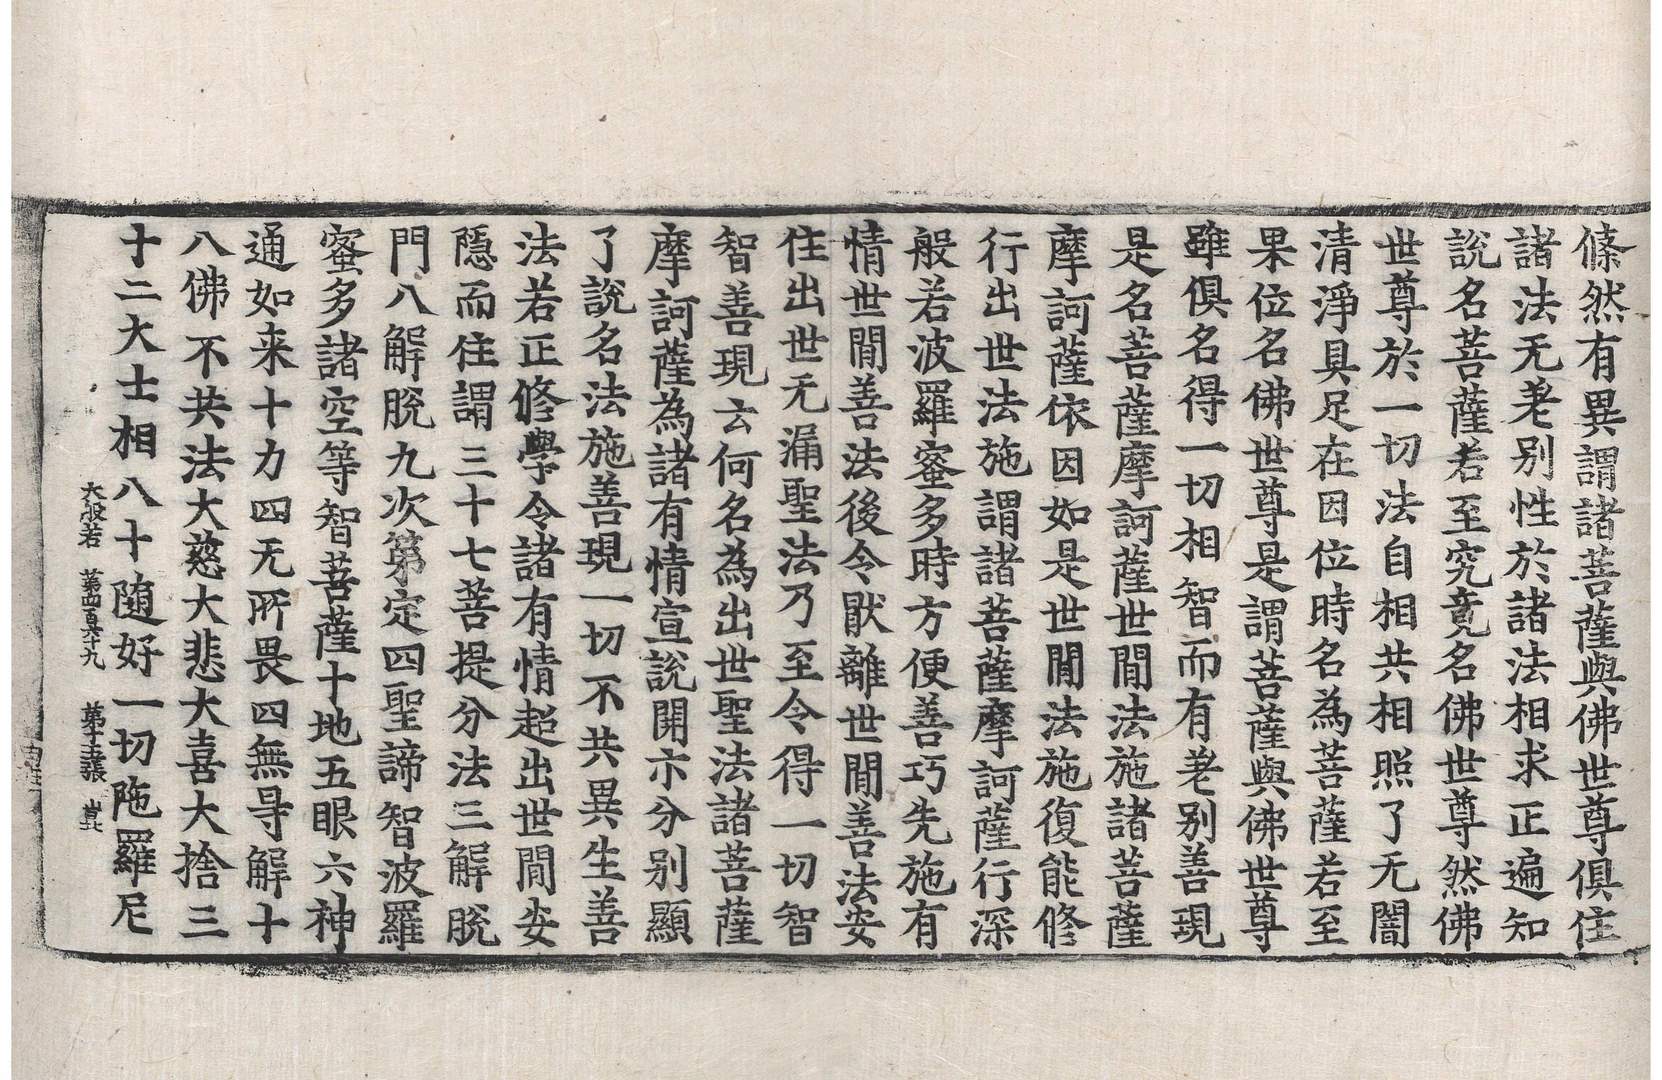 倏然有異謂諸菩薩與佛世尊俱住
諸法无差別性於諸法相求正遍知
說名菩薩若至究竟名佛世尊然佛
世尊於一切法自相共相照了无闇
清淨具足在因位時名為菩薩若至
果位名佛世尊是謂菩薩與佛世尊
雖俱名得一切相智而有差別善現
是名菩薩摩訶薩世間法施諸菩薩
摩訶薩依因如是世間法施復能修
行出世法施謂諸菩薩摩訶薩行深
般若波羅蜜多時方便善巧先施有
情世間善法後令猒離世間善法安
住出世无漏聖法乃至令得一切智
智善現云何名為出世聖法諸菩薩
摩訶薩為諸有情宣說開示分別顯
了說名法施善現一切不共異生善
法若正修學令諸有情超出世間安
隱而住謂三十七菩提分法三解脫
門八解脫九次第定四聖諦智波羅
蜜多諸空等智菩薩十地五眼六神
通如来十力四无所畏四無㝵解十
八佛不共法大慈大悲大喜大捨三
十二大士相八十随好一切陁羅尼
大般若 第四百六十九 第十五張